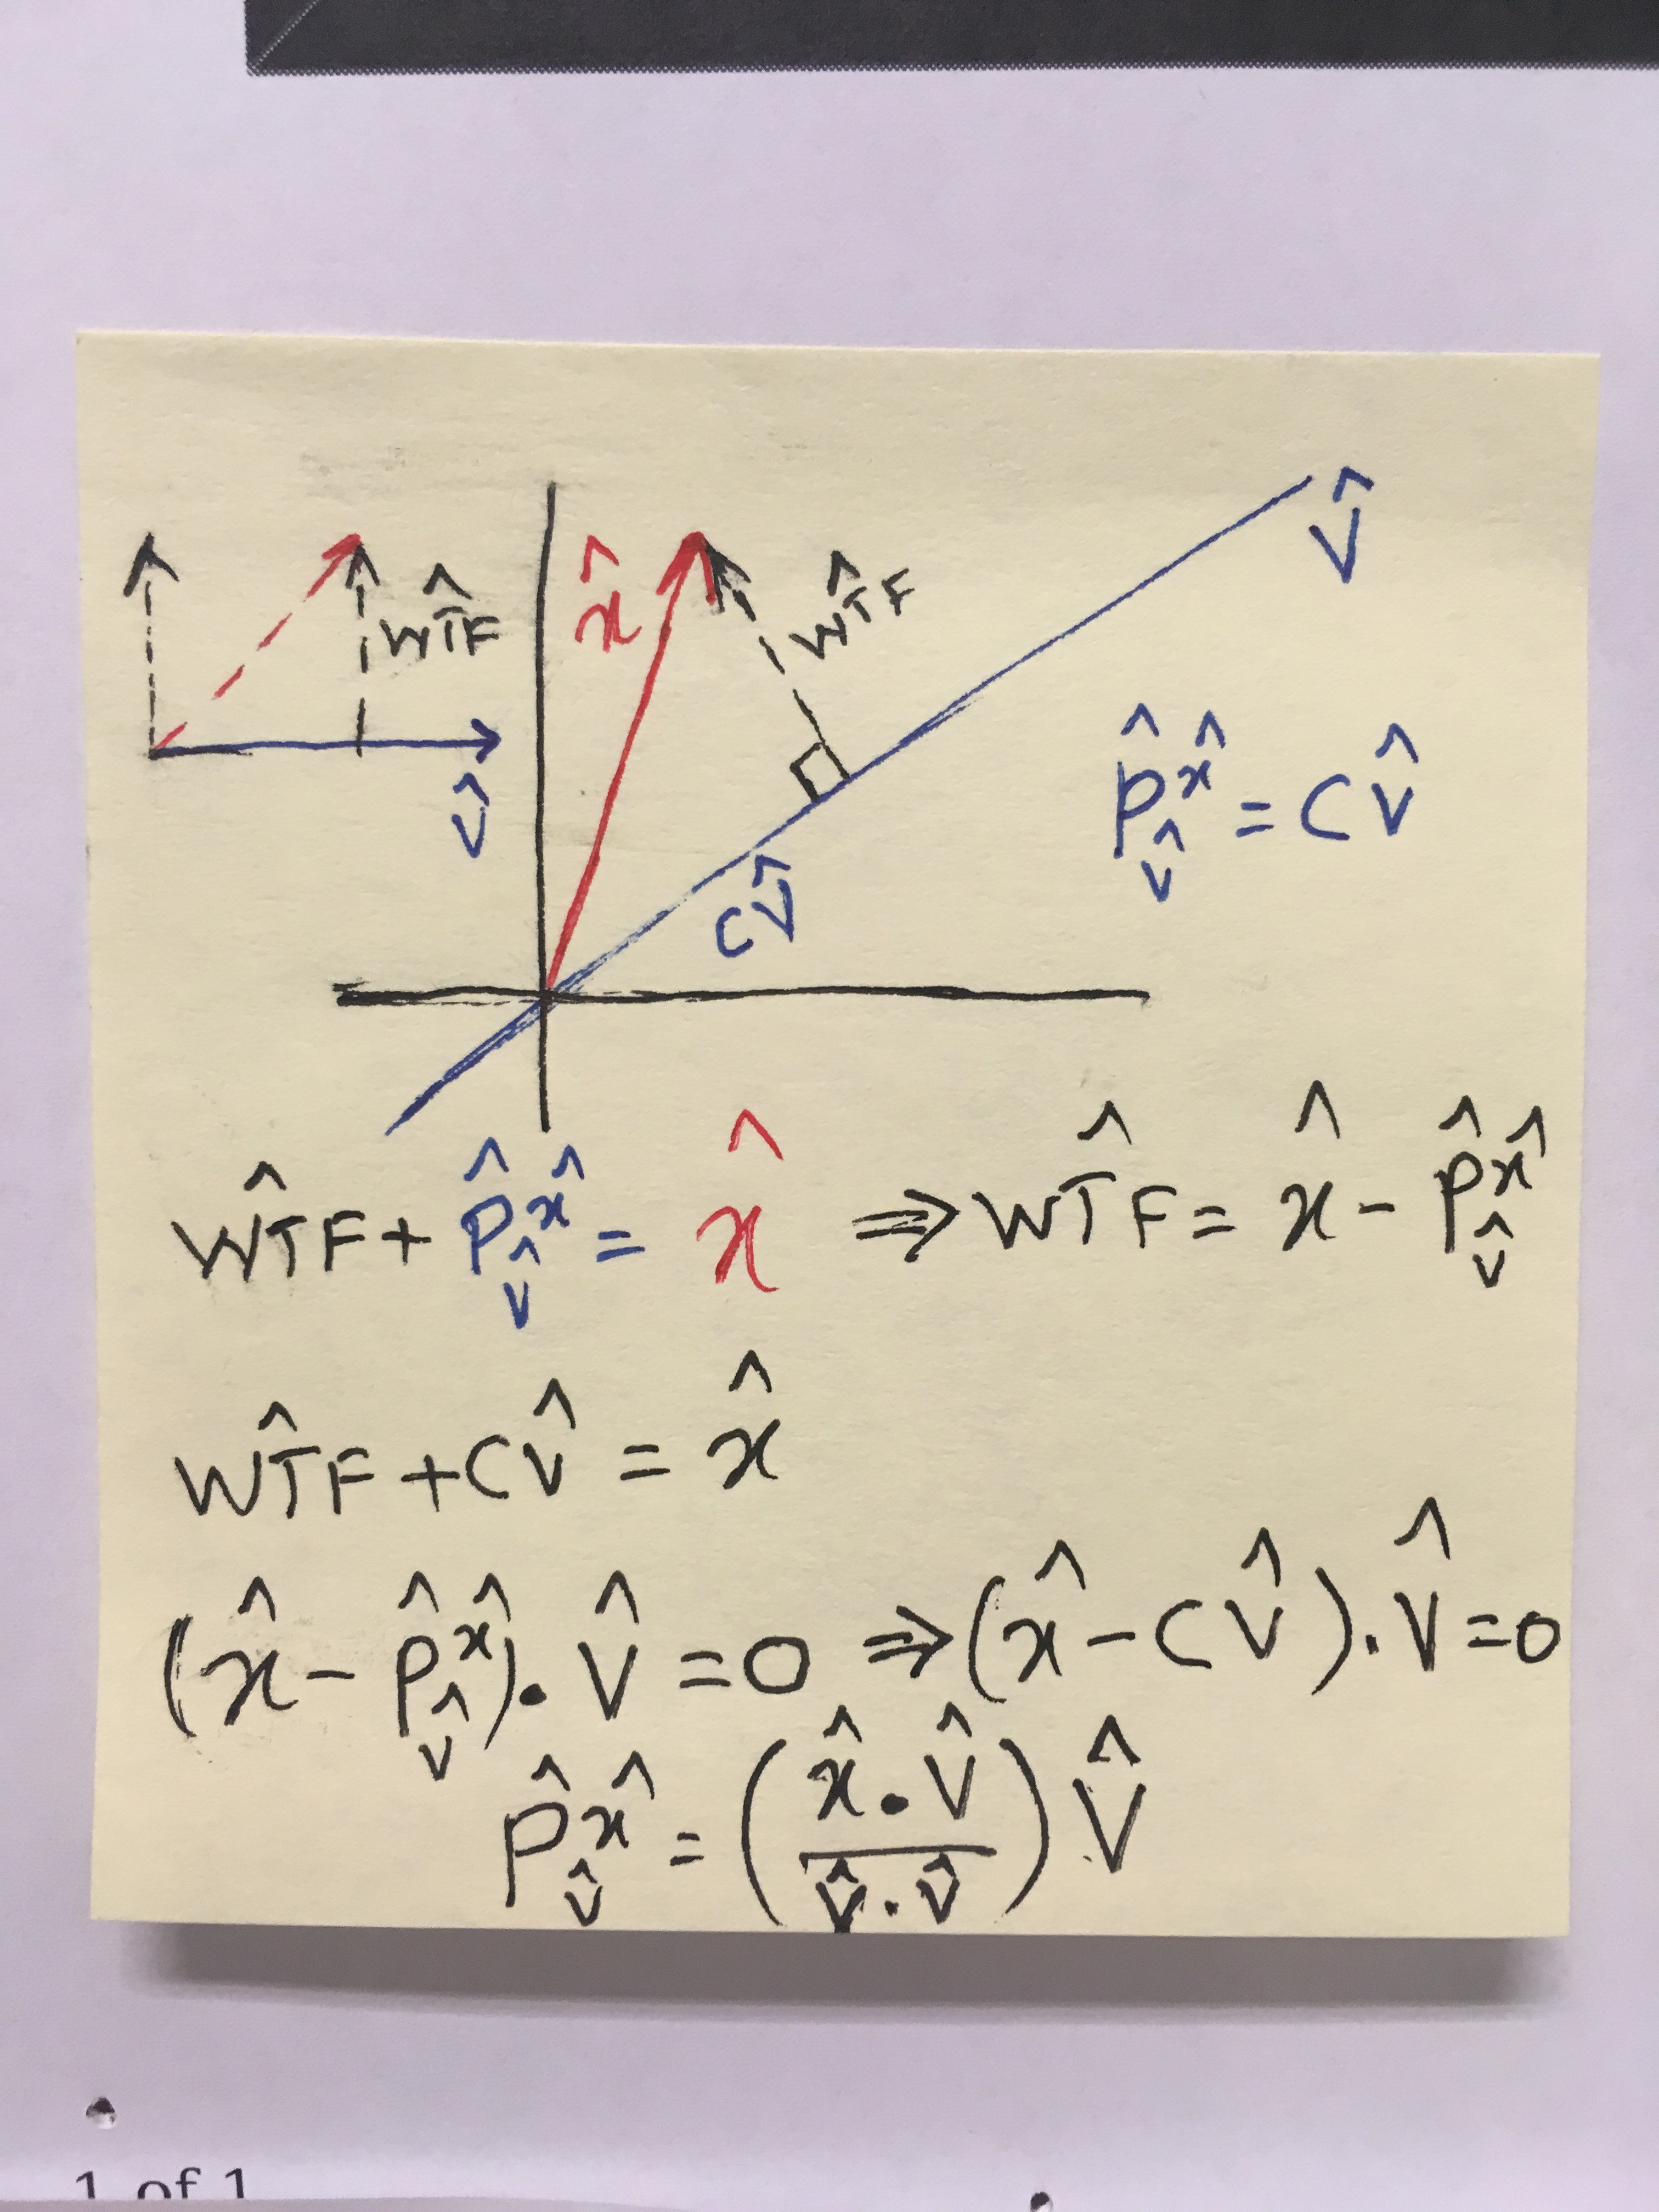 x̂
V̂
WT̂F
WT̂F
V̂
P̂_V̂^x̂ = CV̂
CV̂
WT̂F + P̂_V̂^x̂ = x̂ ⇒ WT̂F = x̂ - P̂_V̂^x̂
WT̂F + CV̂ = x̂
(x̂ - P̂_V̂^x̂) • V̂ = 0 ⇒ (x̂ - CV̂) . V̂ = 0
P̂_V̂^x̂ = (x̂ • V̂ / V̂ . V̂) V̂
1 of 1